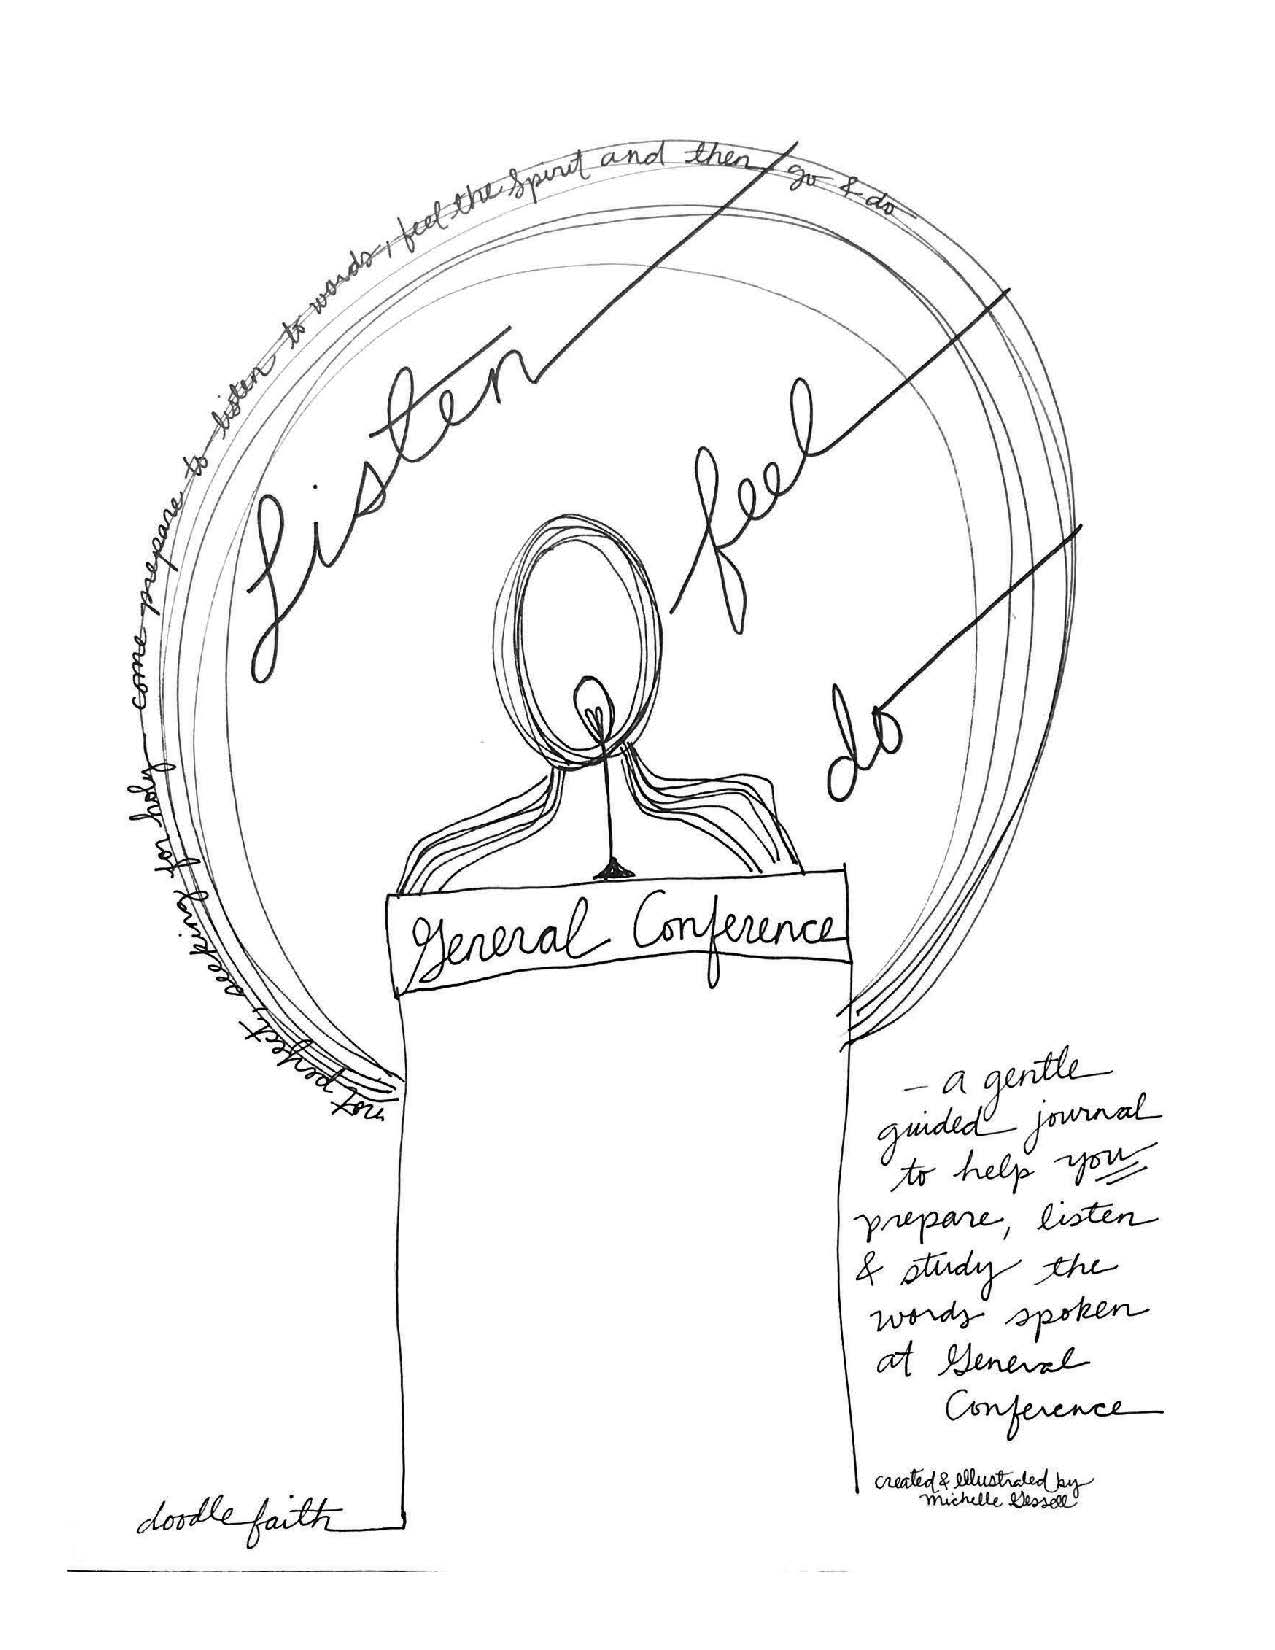 not perfect, seeking for holy — come prepare to listen to words, feel the Spirit and then go & do
Listen
feel
do
General Conference
– a gentle
guided journal
to help you
prepare, listen
& study the
words spoken
at General
Conference
created & illustrated by
Michelle Gessell
doodle faith